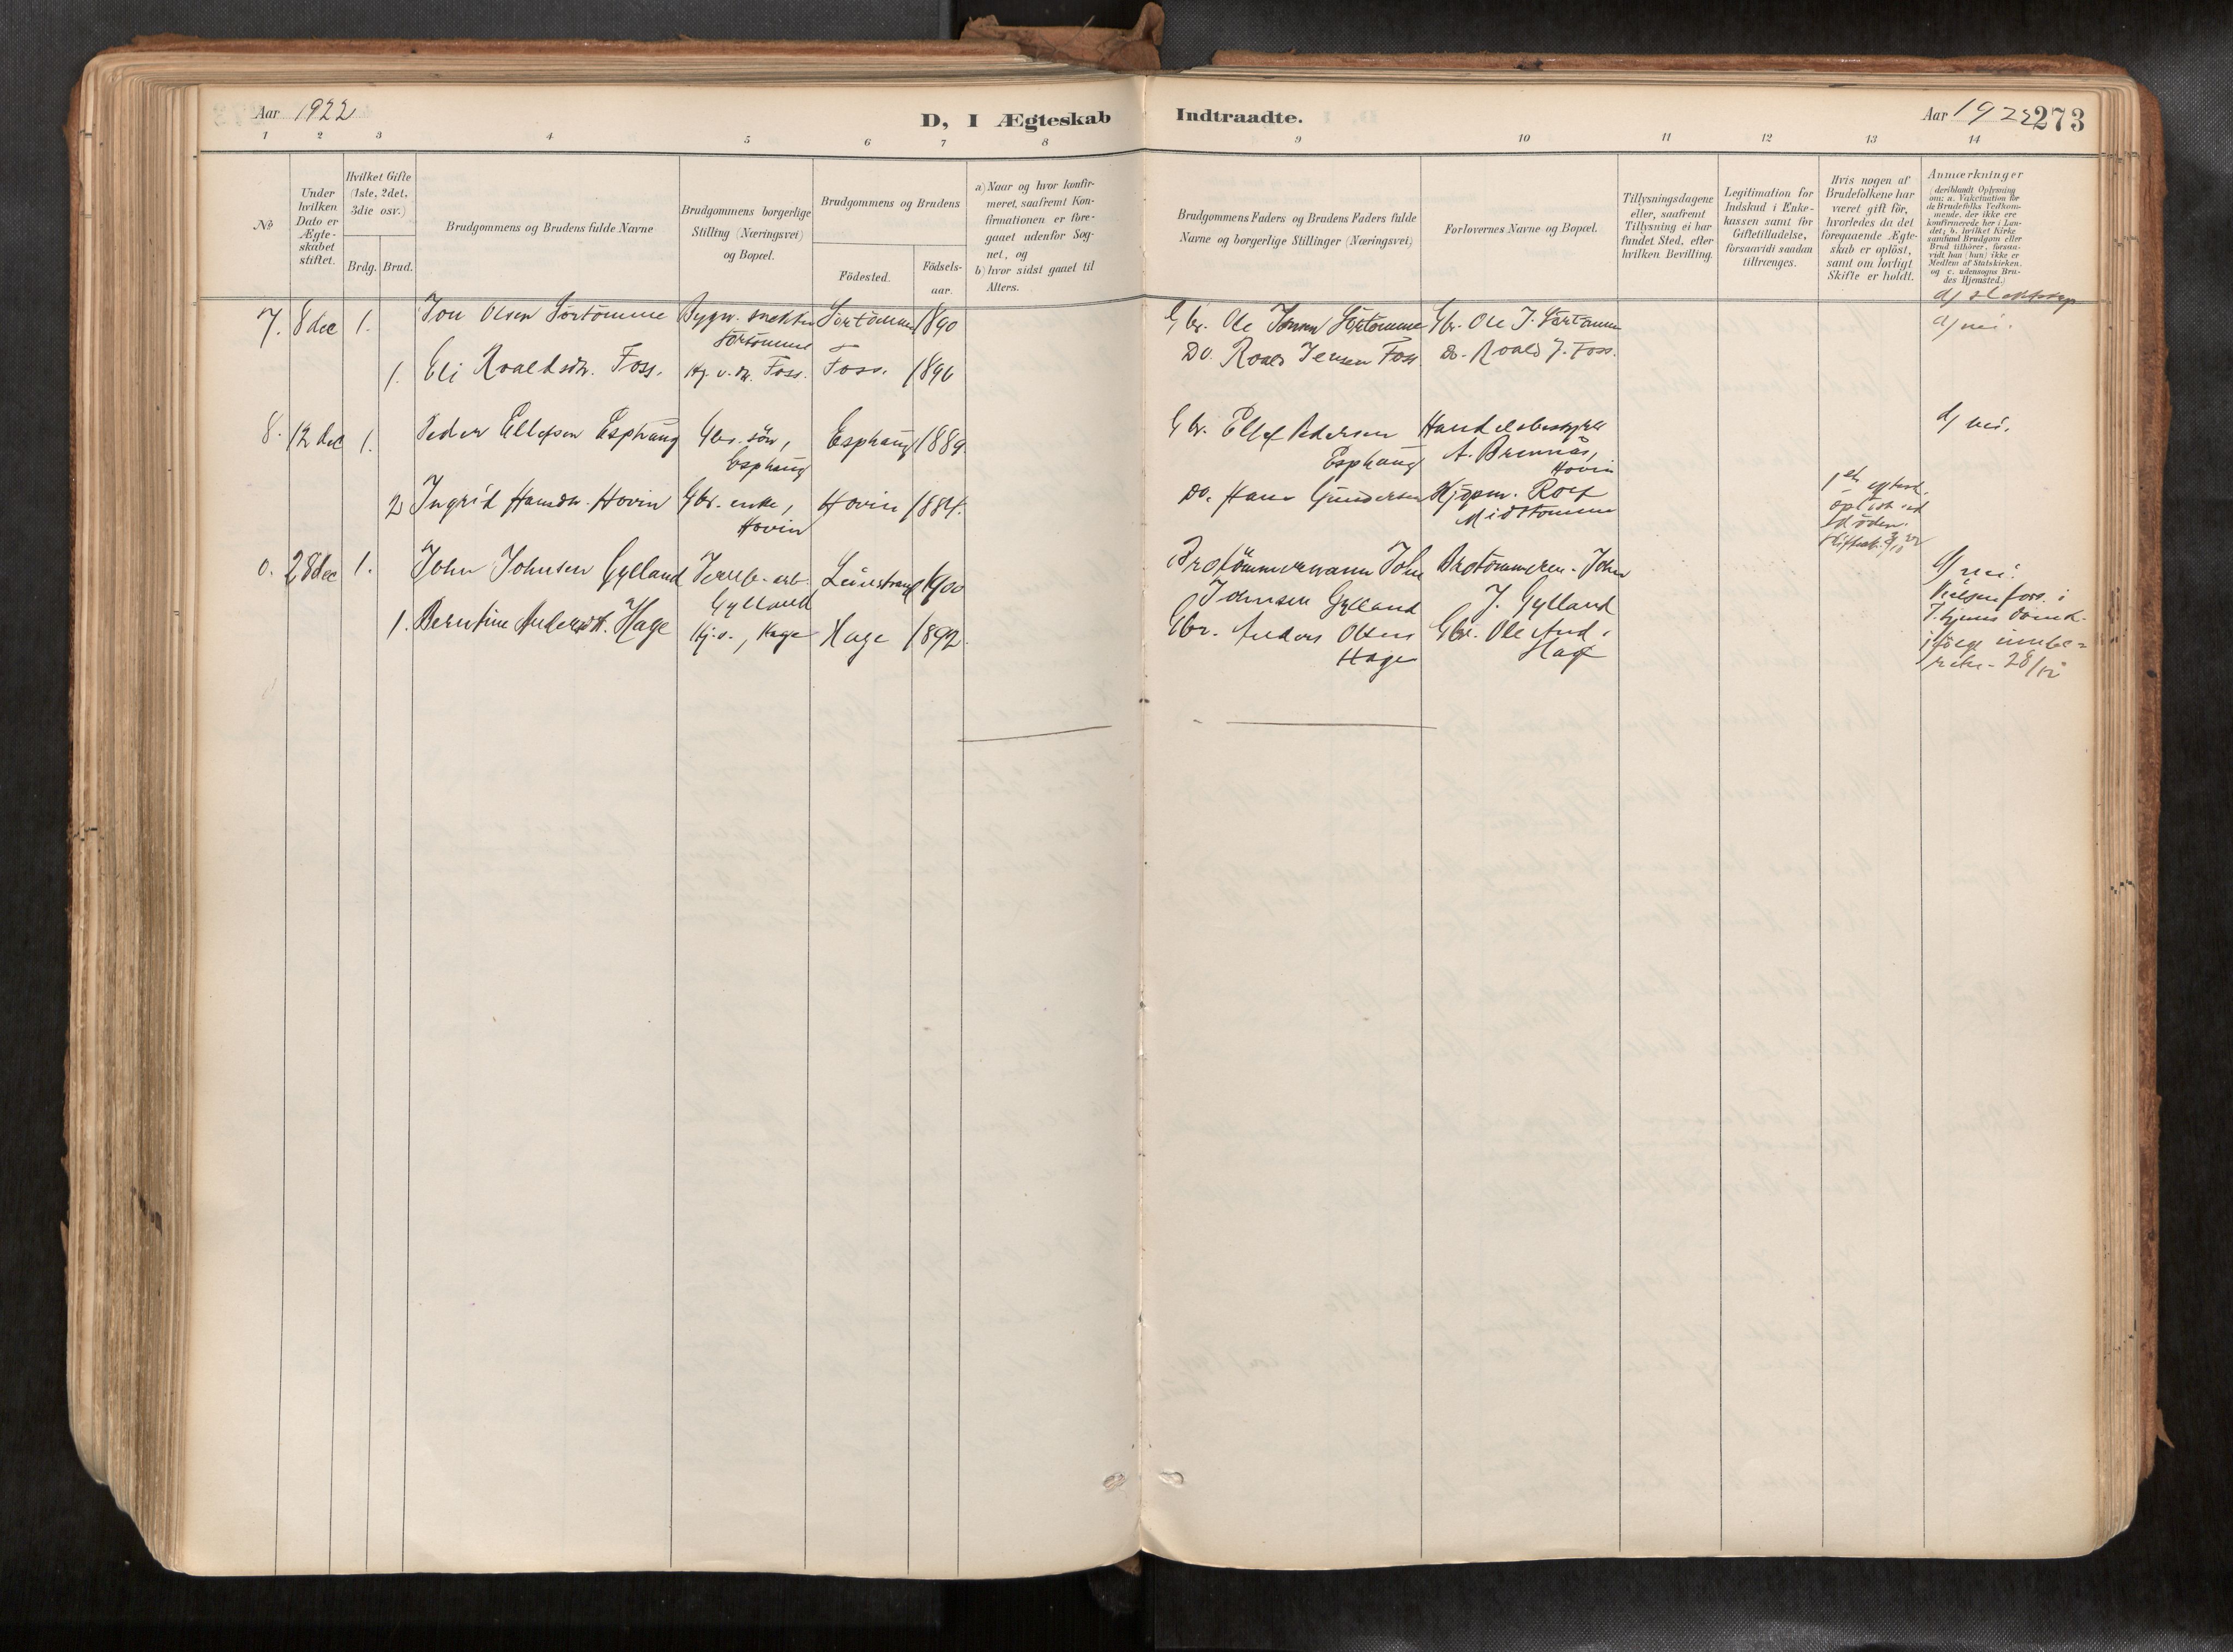 Aar 1922
D, I Ægteskab Indtraadte.
Aar 1922 273
1 2 3 4 5 6 7 8 9 10 11 12 13 14
№
Under
hvilken
Dato er
Ægte-
skabet
stiftet.
Hvilket Gifte
(1ste, 2det,
3die osv.)
Brdg. Brud.
Brudgommens og Brudens fulde Navne
Brudgommens borgerlige
Stilling (Næringsvei)
og Bopæl.
Brudgommens og Brudens
Födested.
Födsels-
aar.
a) Naar og hvor konfir-
meret, saafremt Kon-
firmationen er fore-
gaaet udenfor Sog-
net, og
b) hvor sidst gaaet til
Alters.
Brudgommens Faders og Brudens Faders fulde
Navne og borgerlige Stillinger (Næringsvei)
Forlovernes Navne og Bopæl.
Tillysningsdagene
eller, saafremt
Tillysning ei har
fundet Sted, efter
hvilken Bevilling.
Legitimation for
Indskud i Enke-
kassen samt for
Giftetilladelse,
forsaavidt saadan
tiltrænges.
Hvis nogen af
Brudefolkene har
været gift för,
hvorledes da det
foregaaende Ægte-
skab er oplöst,
samt om lovligt
Skifte er holdt.
Anmærkninger
(deriblandt Oplysning
om: a. Vakcination for
de Brudefolks Vedkom-
mende, der ikke ere
konfirmerede her i Lan-
det; b. hvilket Kirke
samfund Brudgom eller
Brud tilhörer, forsaa-
vidt han (hun) ikke er
Medlem af Statskirken.
og c. udensogns Bru-
des Hjemsted.)
d) slektskap
7. 8 dec 1. Jon Olsen Sörtömme Bygn. snekker Sörtömme 1890 Gbr. Ole Jonsen Sörtömme Gbr. Ole J. Sörtömme d) nei.
Sörtömme
1. Eli Roaldsdtr. Foss. Hj. v. m. Foss. Foss. 1896 Do. Roald Jensen Foss Do. Roald J. Foss.
8. 12 dec 1. Peder Ellefsen Esphaug Gbr. sön, Esphaug 1889. Gbr. Ellef Pedersen Handelsbestyrer d) nei.
Esphaug Esphaug A. Brennås,
Hovin
2 Ingrid Hansdtr. Hovin Gbr. enke, Hovin 1884. Do. Hans Gundersen Kjöpm. Rolf
Hovin Midttömme
1ste egtesk.
oplöst ved
döden.
0. 28 dec 1. John Johnsen Gylland Jernb. arb. Leinstrand 1900 Brotömmermann John Brotömmerm. John d) nei.
Gylland Johnsen Gylland J. Gylland
1. Berntine Andersdt. Hage Hj. v., Hage Hage 1892. Gbr. Anders Olsen Gbr. Ole And.
Hage Hage
Vielsen foss. i
ifölge innbe=
retn. 28/12